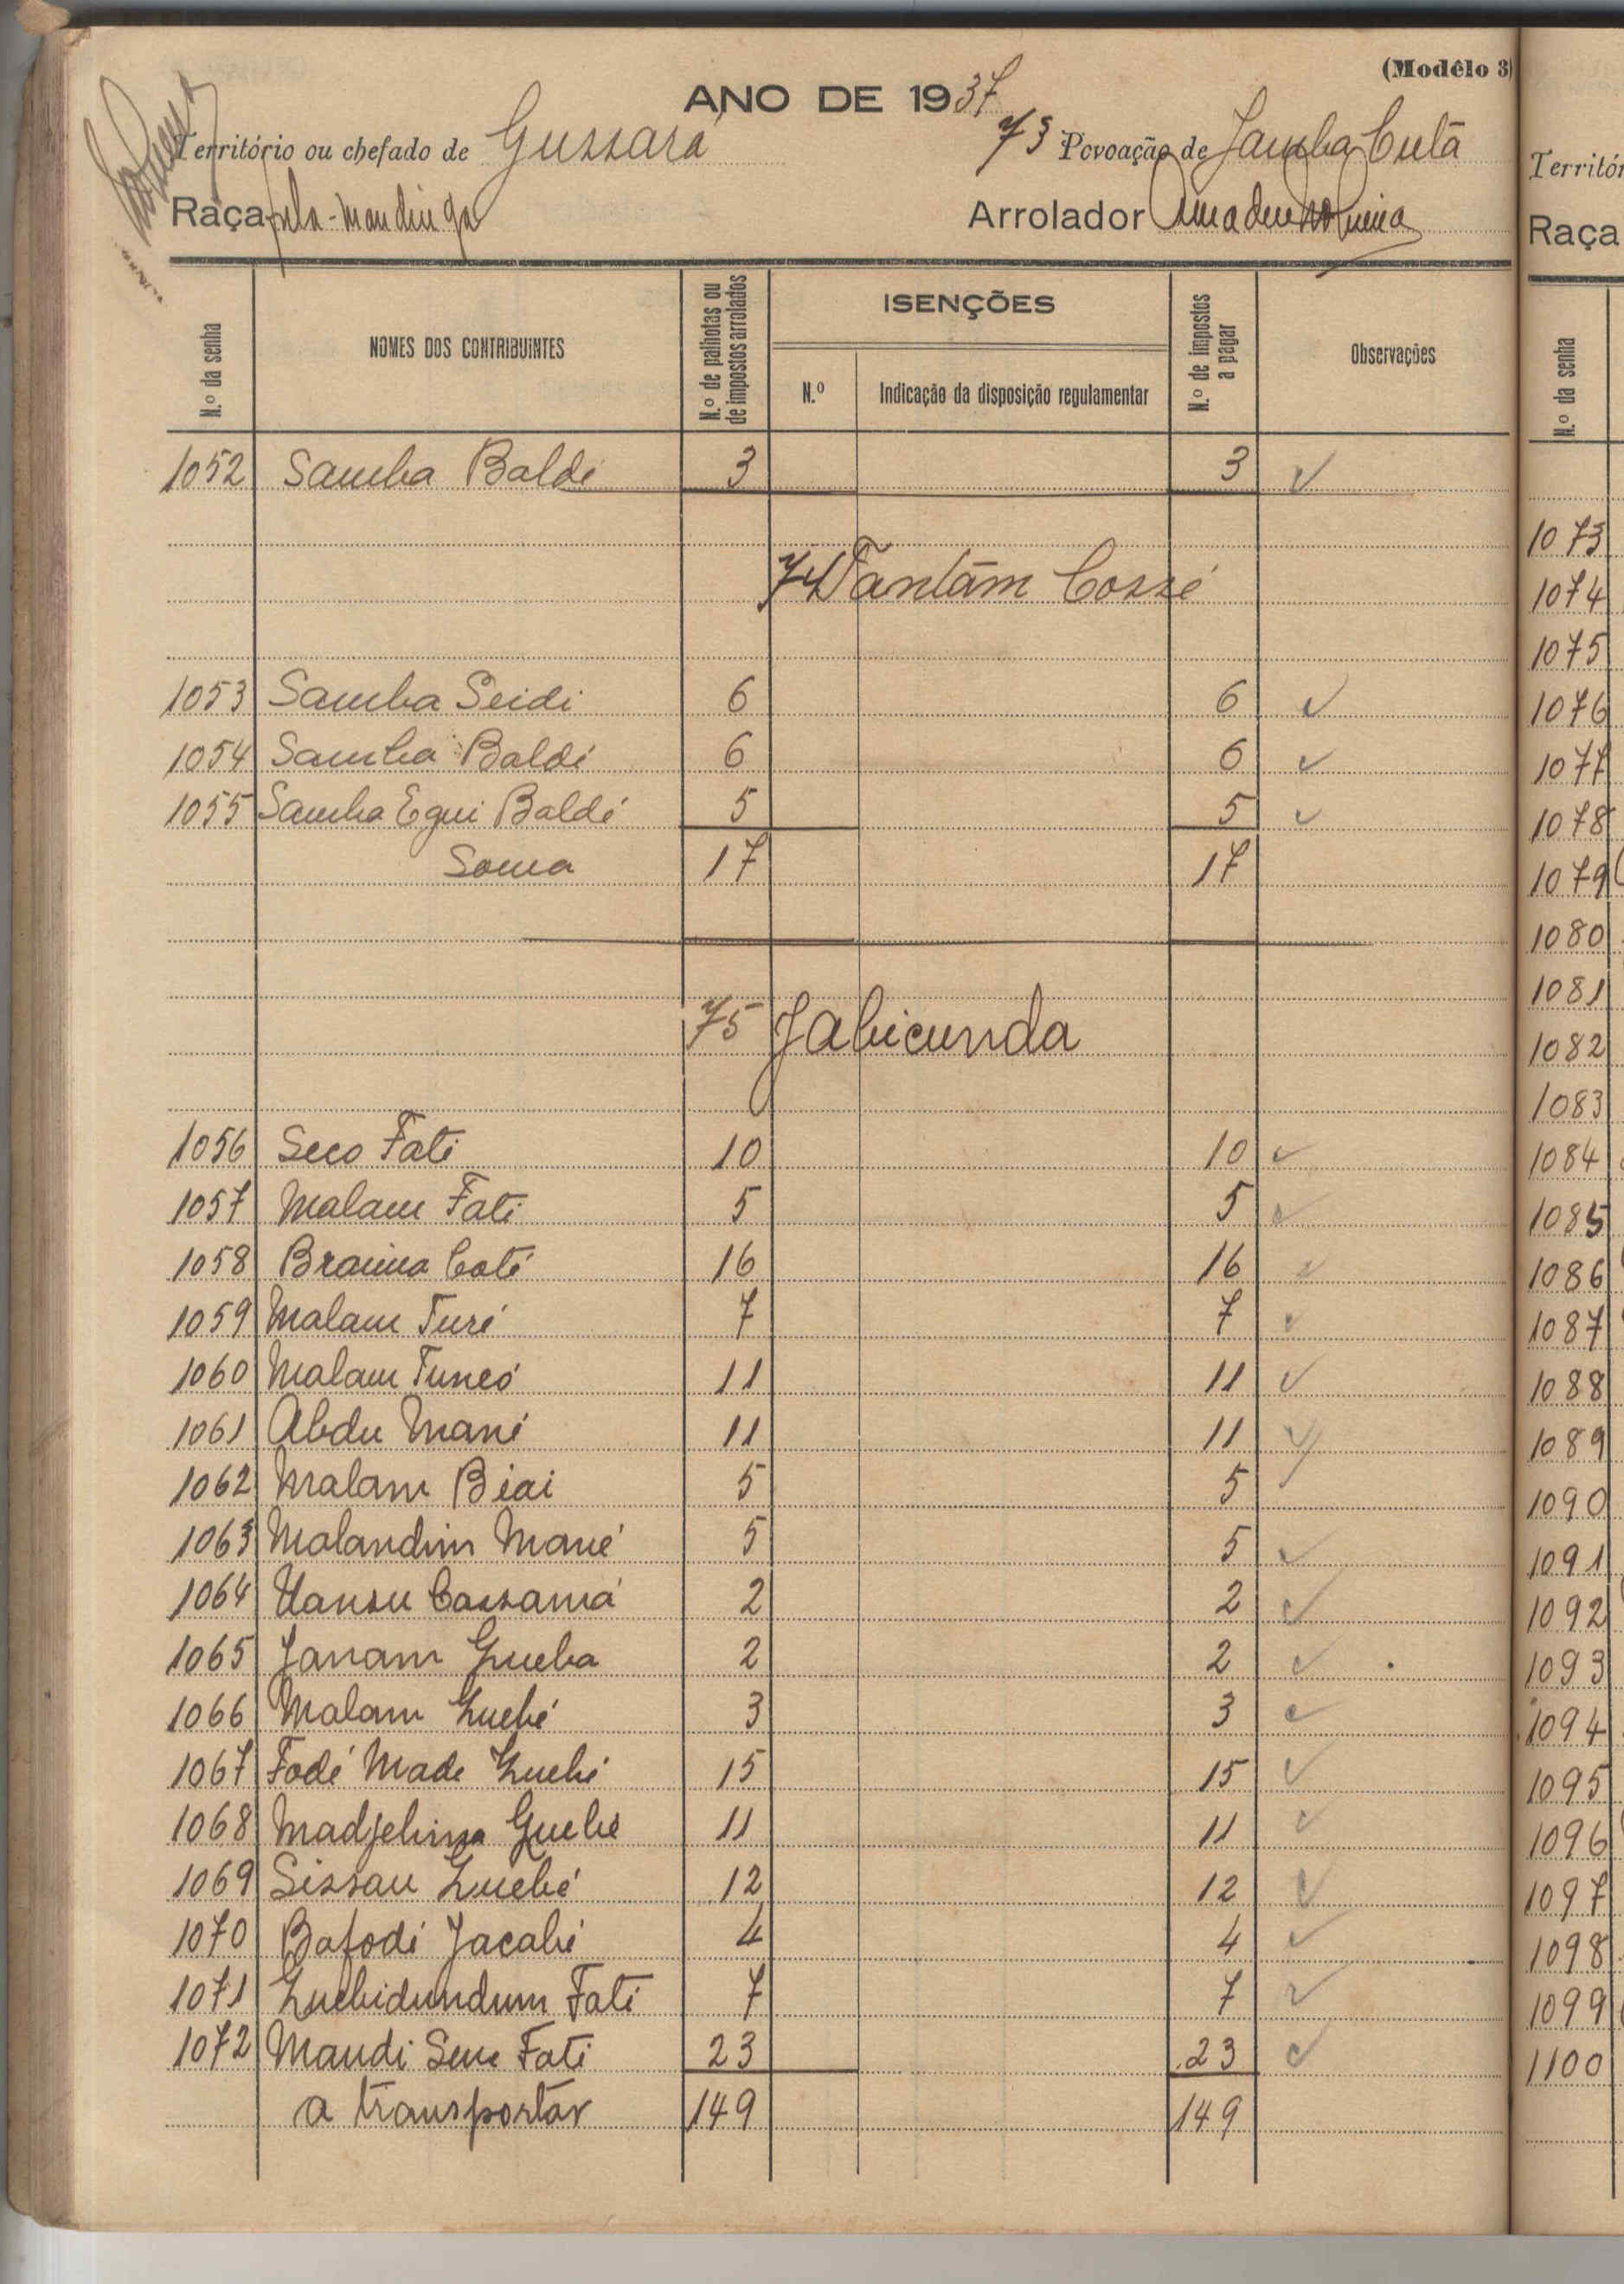 (Modêlo 3)
ANO DE 1937
Território ou chefado de Gussará 73 Povoação de Jamba Cutã
Raça fula-mandinga Arrolador
N.º da senha NOMES DOS CONTRIBUINTES N.º de palhotas ou de impostos arrolados ISENÇÕES N.º Indicação da disposição regulamentar N.º de impostos a pagar Observações
1052 Samba Baldé 3 3 ✓
74 Tantãm Cossé
1053 Samba Seidi 6 6 ✓
1054 Samba Baldé 6 6 ✓
1055 Samba Egui Baldé 5 5 ✓
Soma 17 17
75 Jabicunda
1056 Seco Fati 10 10 ✓
1057 Malam Fati 5 5 ✓
1058 Braima Coté 16 16 ✓
1059 Malam Turé 7 7 ✓
1060 Malam Tuncó 11 11 ✓
1061 Abdu Mané 11 11 ✓
1062 Malam Biai 5 5
1063 Malandim Mané 5 5 ✓
1064 Uansu Cassamá 2 2 ✓
1065 Janam Gueba 2 2 ✓
1066 Malam Guebé 3 3 ✓
1067 Fodé Made Guebé 15 15 ✓
1068 Guebé 11 11 ✓
1069 Sissau Guebé 12 12 ✓
1070 Bafodé Jacabé 4 4 ✓
1071 Guebidundum Fati 7 7 ✓
1072 Maudi Sene Fati 23 23 ✓
a transportar 149 149
Territór
Raça
N.º da senha
1073
1074
1075
1076
1077
1078
1079
1080
1081
1082
1083
1084
1085
1086
1087
1088
1089
1090
1091
1092
1093
1094
1095
1096
1097
1098
1099
1100